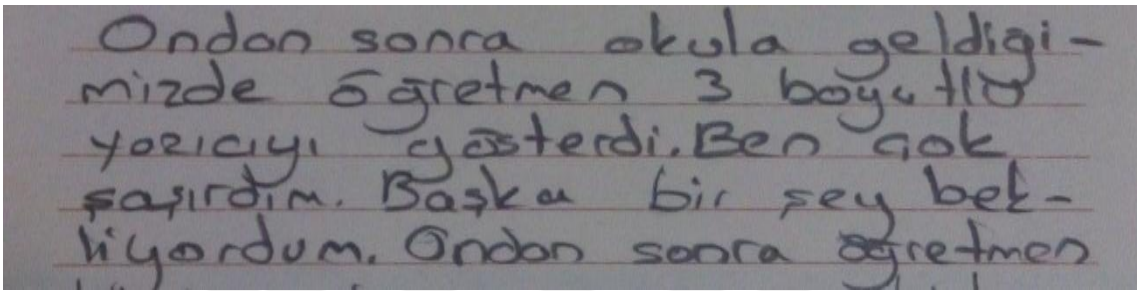 Ondan sonra okula geldiği-
mizde öğretmen 3 boyutlu
yazıcıyı gösterdi. Ben çok
şaşırdım. Başka bir şey bek-
liyordum. Ondan sonra öğretmen